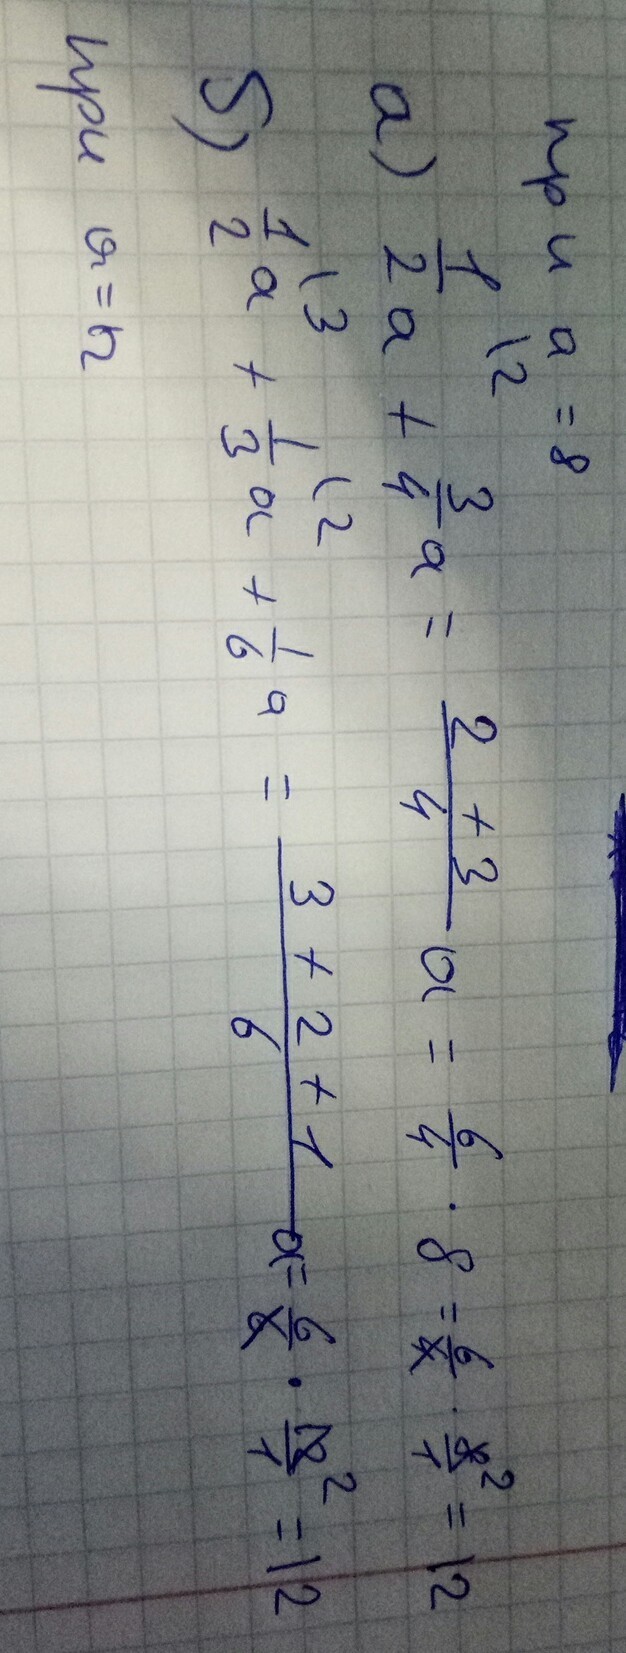 при a = 8
а) 1/2 \2 a + 3/4 a = (2 + 3)/4 a = 6/4 · 8 = 6/4 · 8/1 ² = 12
б) 1/2 \3 a + 1/3 \2 a + 1/6 a = (3 + 2 + 1)/6 a = 6/6 · 12/1 ² = 12
при a = 12